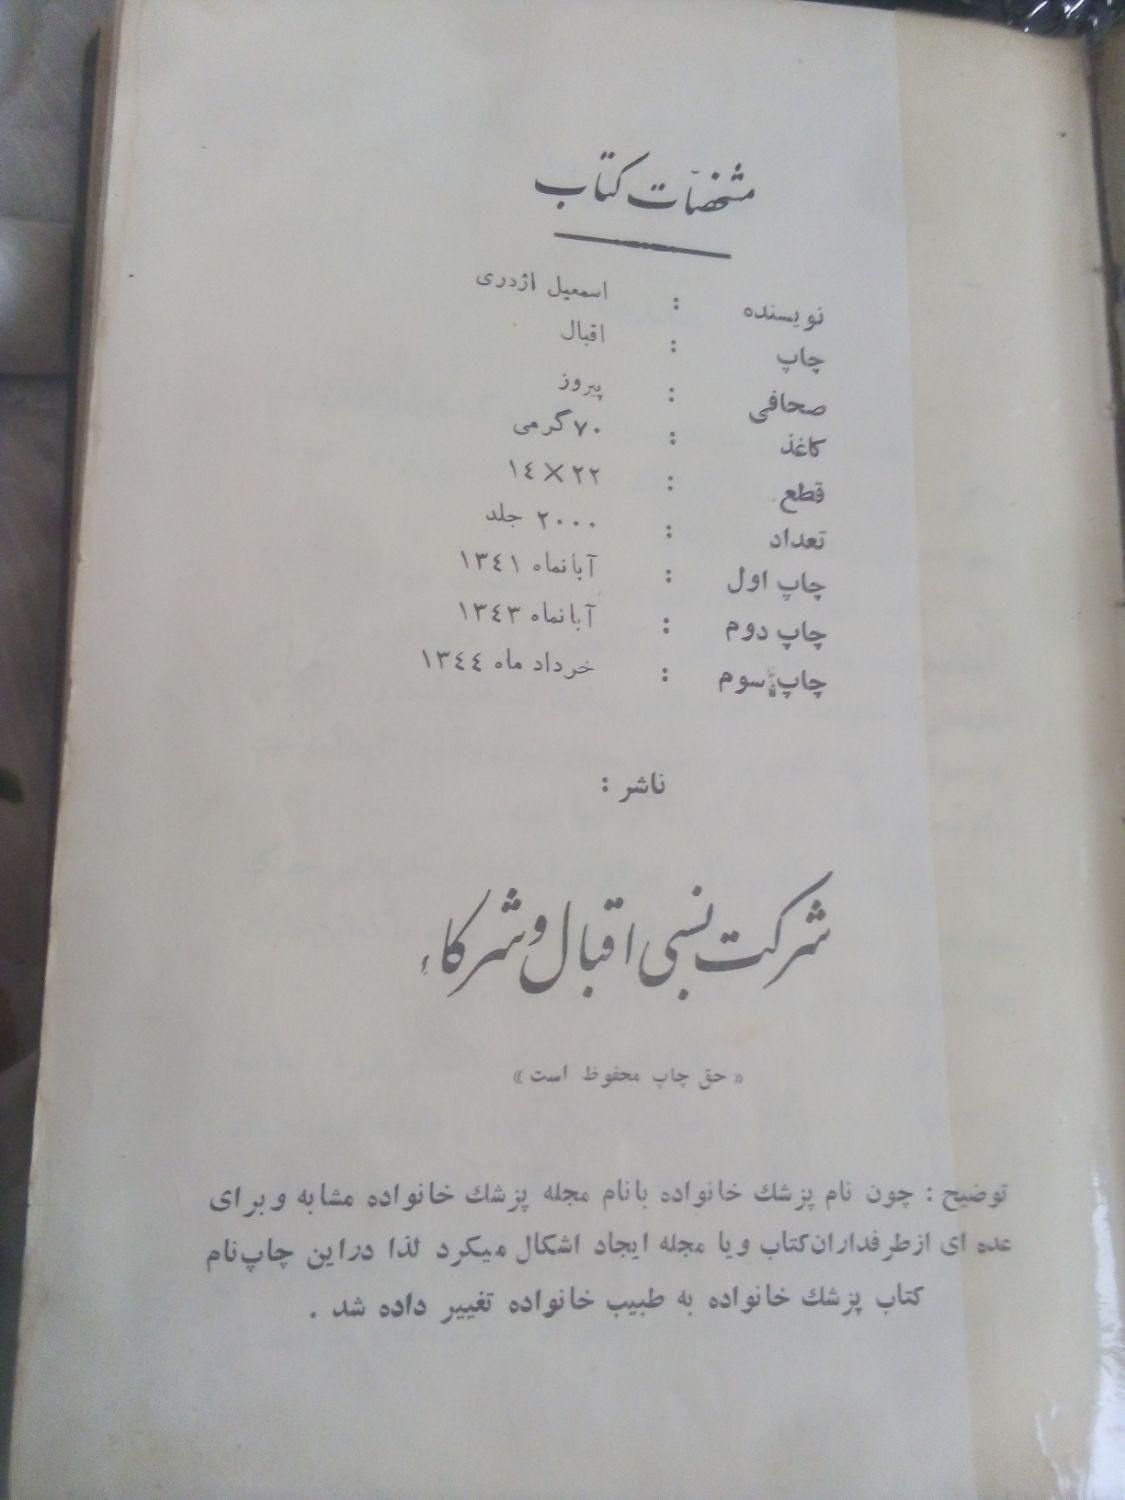 مشخصات کتاب
نویسنده : اسمعیل اژدری
چاپ : اقبال
صحافی : پیروز
کاغذ : ۷۰ گرمی
قطع : ۲۲ × ۱٤
تعداد : ۲۰۰۰ جلد
چاپ اول : آبانماه ۱۳٤۱
چاپ دوم : آبانماه ۱۳٤۳
چاپ سوم : خرداد ماه ۱۳٤٤
ناشر :
شرکت نسبی اقبال و شرکاء
« حق چاپ محفوظ است »
توضیح : چون نام پزشك خانواده بانام مجله پزشك خانواده مشابه و برای
عده ای ازطرفداران کتاب و یا مجله ایجاد اشکال میکرد لذا دراین چاپ نام
کتاب پزشك خانواده به طبیب خانواده تغییر داده شد .